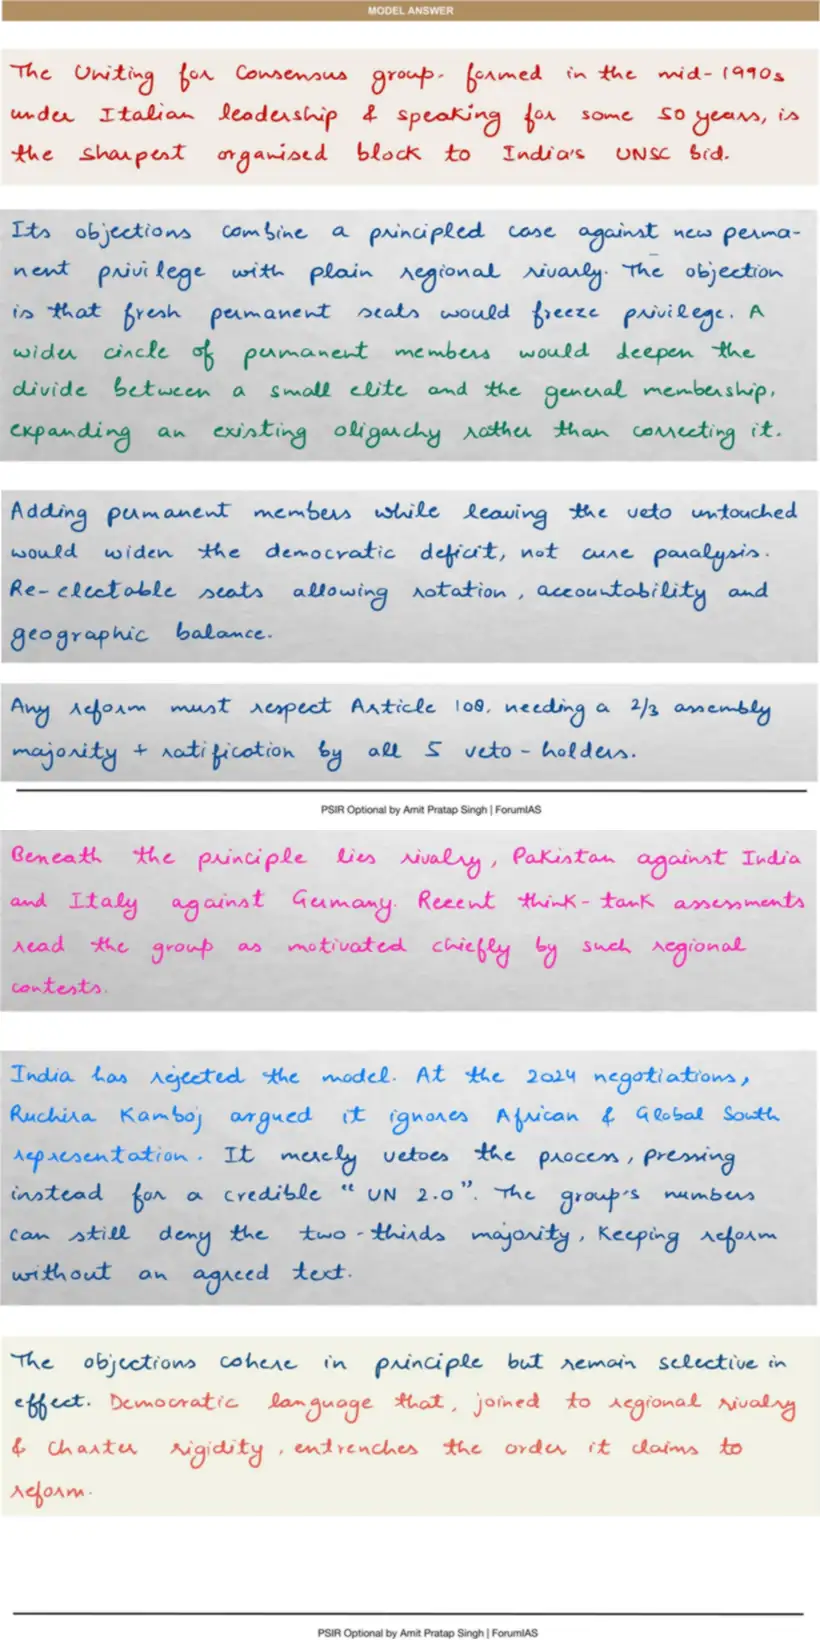 MODEL ANSWER
The Uniting for Consensus group. formed in the mid-1990s
under Italian leadership & speaking for some 50 years, is
the sharpest organised block to India's UNSC bid.
Its objections combine a principled case against new perma-
nent privilege with plain regional rivarly. The objection
is that fresh permanent seats would freeze privilege. A
wider circle of permanent members would deepen the
divide between a small elite and the general membership,
expanding an existing oligarchy rather than correcting it.
Adding permanent members while leaving the veto untouched
would widen the democratic deficit, not cure paralysis.
Re-electable seats allowing rotation, accountability and
geographic balance.
Any reform must respect Article 108, needing a 2/3 assembly
majority + ratification by all 5 veto-holders.
PSIR Optional by Amit Pratap Singh | ForumIAS
Beneath the principle lies rivalry, Pakistan against India
and Italy against Germany. Recent think-tank assessments
read the group as motivated chiefly by such regional
contests.
India has rejected the model. At the 2024 negotiations,
Ruchira Kamboj argued it ignores African & Global South
representation. It merely vetoes the process, pressing
instead for a credible "UN 2.0". The group's numbers
can still deny the two-thirds majority, keeping reform
without an agreed text.
The objections cohere in principle but remain selective in
effect. Democratic language that, joined to regional rivalry
& charter rigidity, entrenches the order it claims to
reform.
PSIR Optional by Amit Pratap Singh | ForumIAS